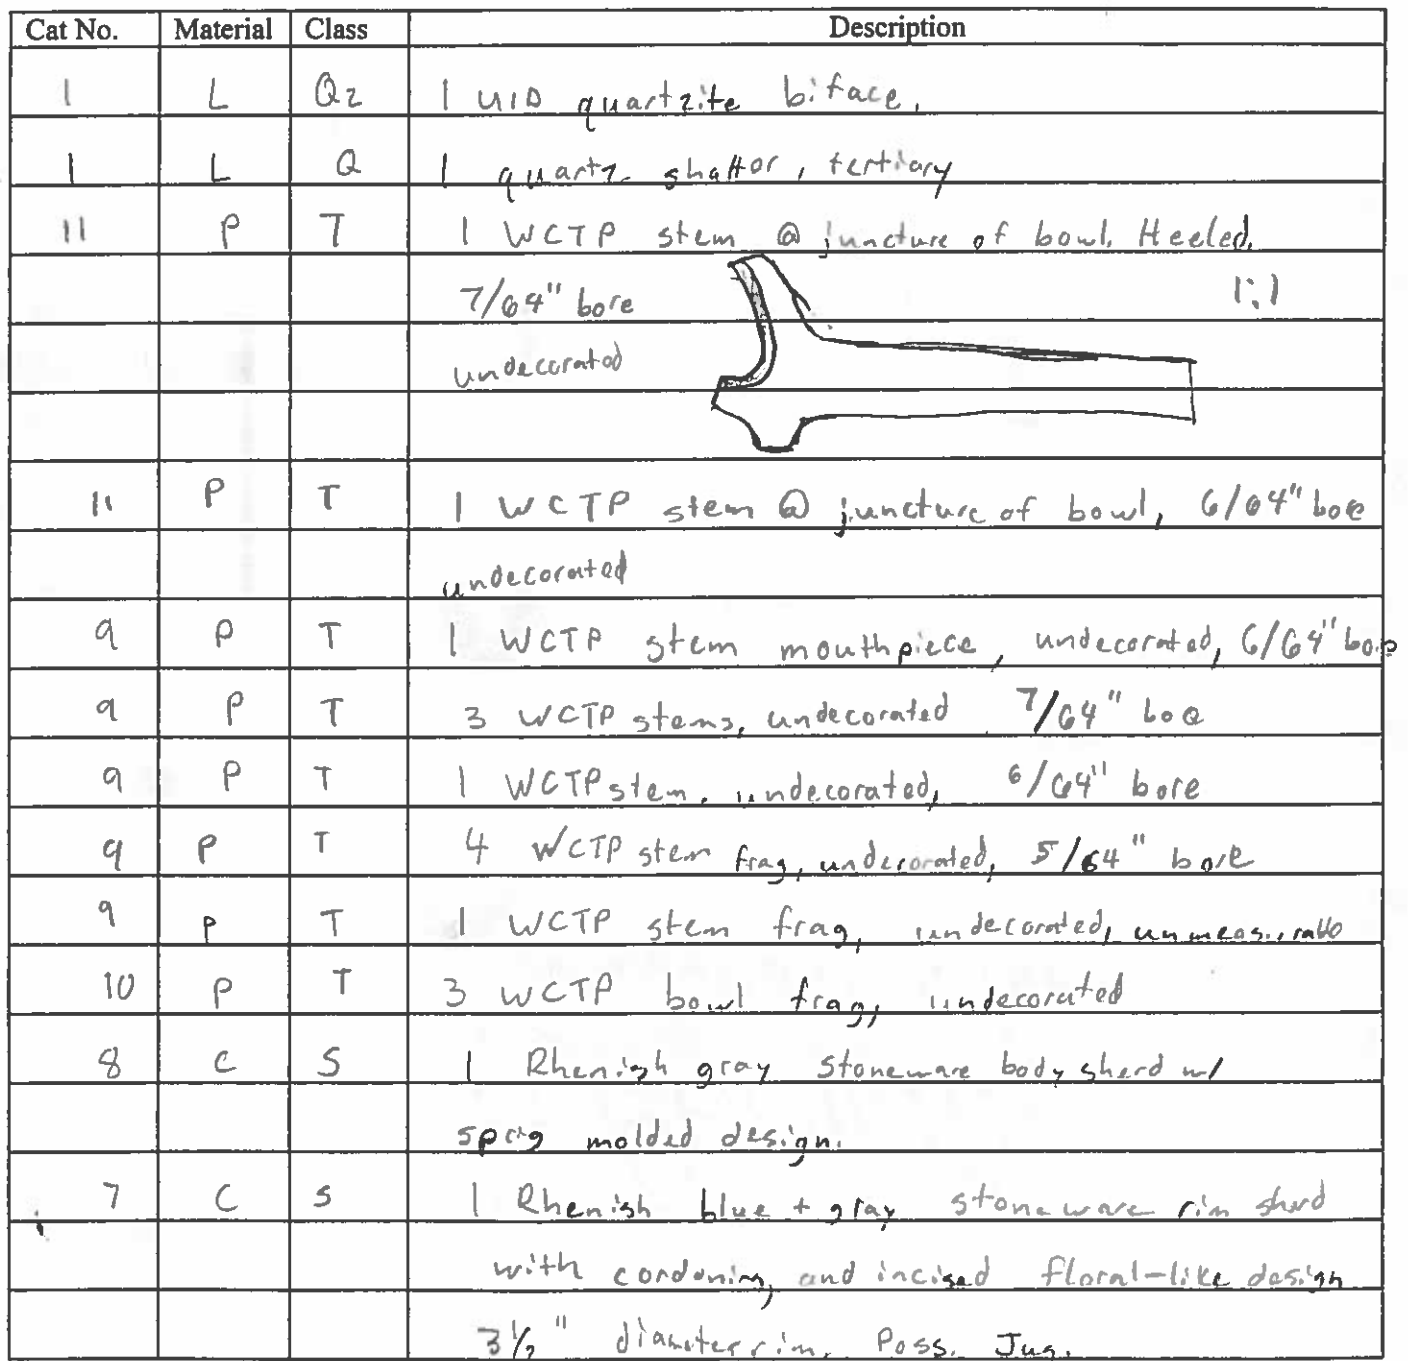 Cat No. Material Class Description
1 L Qz 1 UID quartzite biface.
1 L Q 1 quartz shattor, tertiary
11 P T 1 WCTP stem @ juncture of bowl. Heeled.
7/64" bore 1:1
undecorated
11 P T 1 WCTP stem @ juncture of bowl, 6/64" bore
undecorated
9 P T 1 WCTP stem mouthpiece, undecorated, 6/64" bore
9 P T 3 WCTP stems, undecorated 7/64" bore
9 P T 1 WCTP stem, undecorated, 6/64" bore
9 P T 4 WCTP stem frag, undecorated, 5/64" bore
9 P T 1 WCTP stem frag, undecorated, unmeasurable
10 P T 3 WCTP bowl frag, undecorated
8 C S 1 Rhenish gray stoneware body sherd w/
sprig molded design.
7 C S 1 Rhenish blue + gray stoneware rim sherd
with cordoning, and incised floral-like design
3½" diameter rim. Poss. Jug.